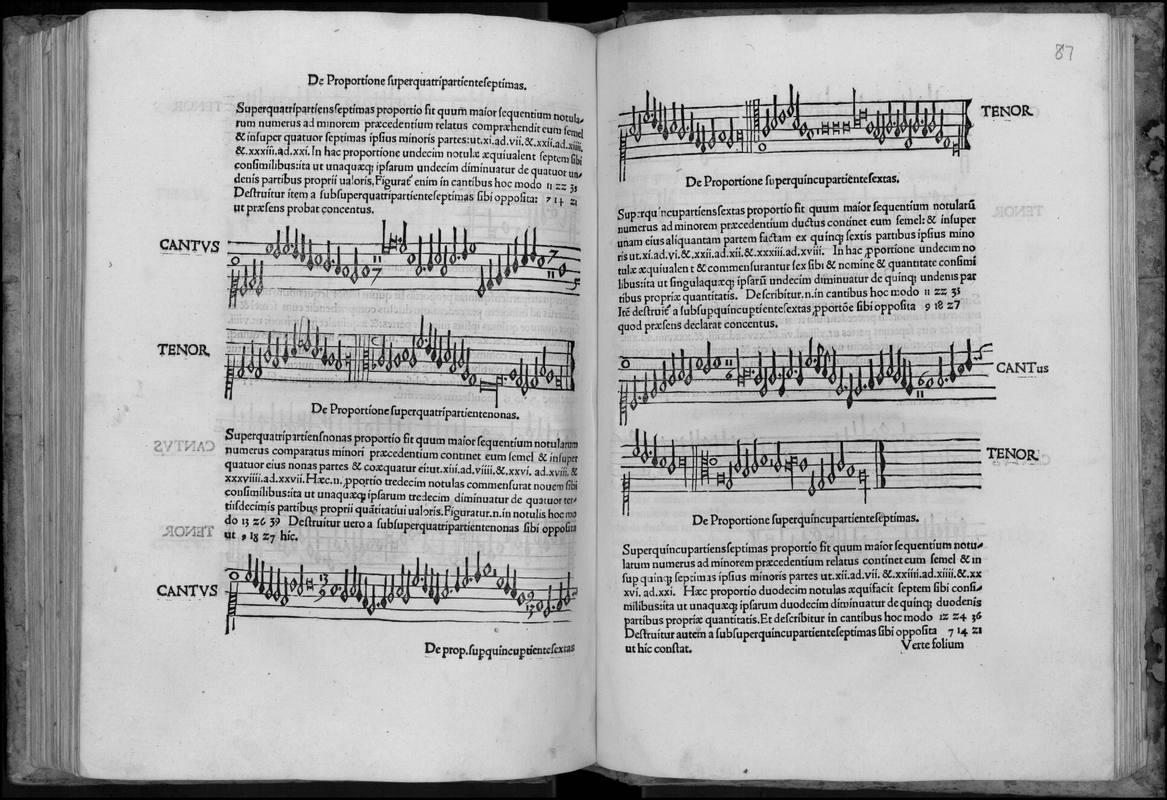 De Proportione superquatripartienteseptimas.
Superquatripartiensseptimas proportio fit quum maior sequentium notula-
rum numerus ad minorem præcedentium relatus compræhendit eum semel
& insuper quatuor septimas ipsius minoris partes:ut.xi.ad.vii.&.xxii.ad.xiiii.
&.xxxiii.ad.xxi.In hac proportione undecim notulæ æquiualent septem sibi
consimilibus:ita ut unaquæq; ipsarum undecim diminuatur de quatuor un-
denis partibus proprii ualoris.Figurat᷑ enim in cantibus hoc modo 11 22 33
Destruitur item a subsuperquatripartienteseptimas sibi opposita: 7 14 21
ut præsens probat concentus.
CANTVS
11
7
7
11
TENOR
De Proportione superquatripartientenonas.
Superquatripartiensnonas proportio fit quum maior sequentium notularum
numerus comparatus minori præcedentium continet eum semel & insuper
quatuor eius nonas partes & coæquatur ei:ut.xiii.ad.viiii.&.xxvi.ad.xviii.&
xxxviiii.ad.xxvii.Hæc.n.ꝓportio tredecim notulas commensurat nouem sibi
consimilibus:ita ut unaquæq; ipsarum tredecim diminuatur de quatuor ter-
tiisdecimis partibus proprii quãtitatiui ualoris.Figuratur.n.in notulis hoc mo
do 13 26 39 Destruitur uero a subsuperquatripartientenonas sibi opposita
ut 9 18 27 hic.
CANTVS
13
9
9
13
De prop.supquincuptientesextas
87
TENOR
De Proportione superquincupartientesextas.
Superquincupartienssextas proportio fit quum maior sequentium notularũ
numerus ad minorem præcedentium ductus continet eum semel: & insuper
unam eius aliquantam partem factam ex quinq; sextis partibus ipsius mino
ris ut.xi.ad.vi.&.xxii.ad.xii.&.xxxiii.ad.xviii. In hac ꝓportione undecim no
tulæ æquiualent & commensurantur sex sibi & nomine & quantitate consimi
libus:ita ut singulaquæq; ipsarũ undecim diminuatur de quinq; undenis par
tibus propriæ quantitatis. Describitur.n.in cantibus hoc modo 11 22 33
Itẽ destruit᷑ a subsupquincuptientesextas ꝓportõe sibi opposita 9 18 27
quod præsens declarat concentus.
CANTus
11
6
6
11
TENOR
De Proportione superquincupartienteseptimas.
Superquincupartiensseptimas proportio fit quum maior sequentium notu-
larum numerus ad minorem præcedentium relatus continet eum semel & in
sup quinq; septimas ipsius minoris partes ut.xii.ad.vii.&.xxiiii.ad.xiiii.&.xx
xvi.ad.xxi. Hæc proportio duodecim notulas æquifacit septem sibi consi-
milibus:ita ut unaquæq; ipsarum duodecim diminuatur de quinq; duodenis
partibus propriæ quantitatis.Et describitur in cantibus hoc modo 12 24 36
Destruitur autem a subsuperquincupartienteseptimas sibi opposita 7 14 21
ut hic constat.
Verte folium